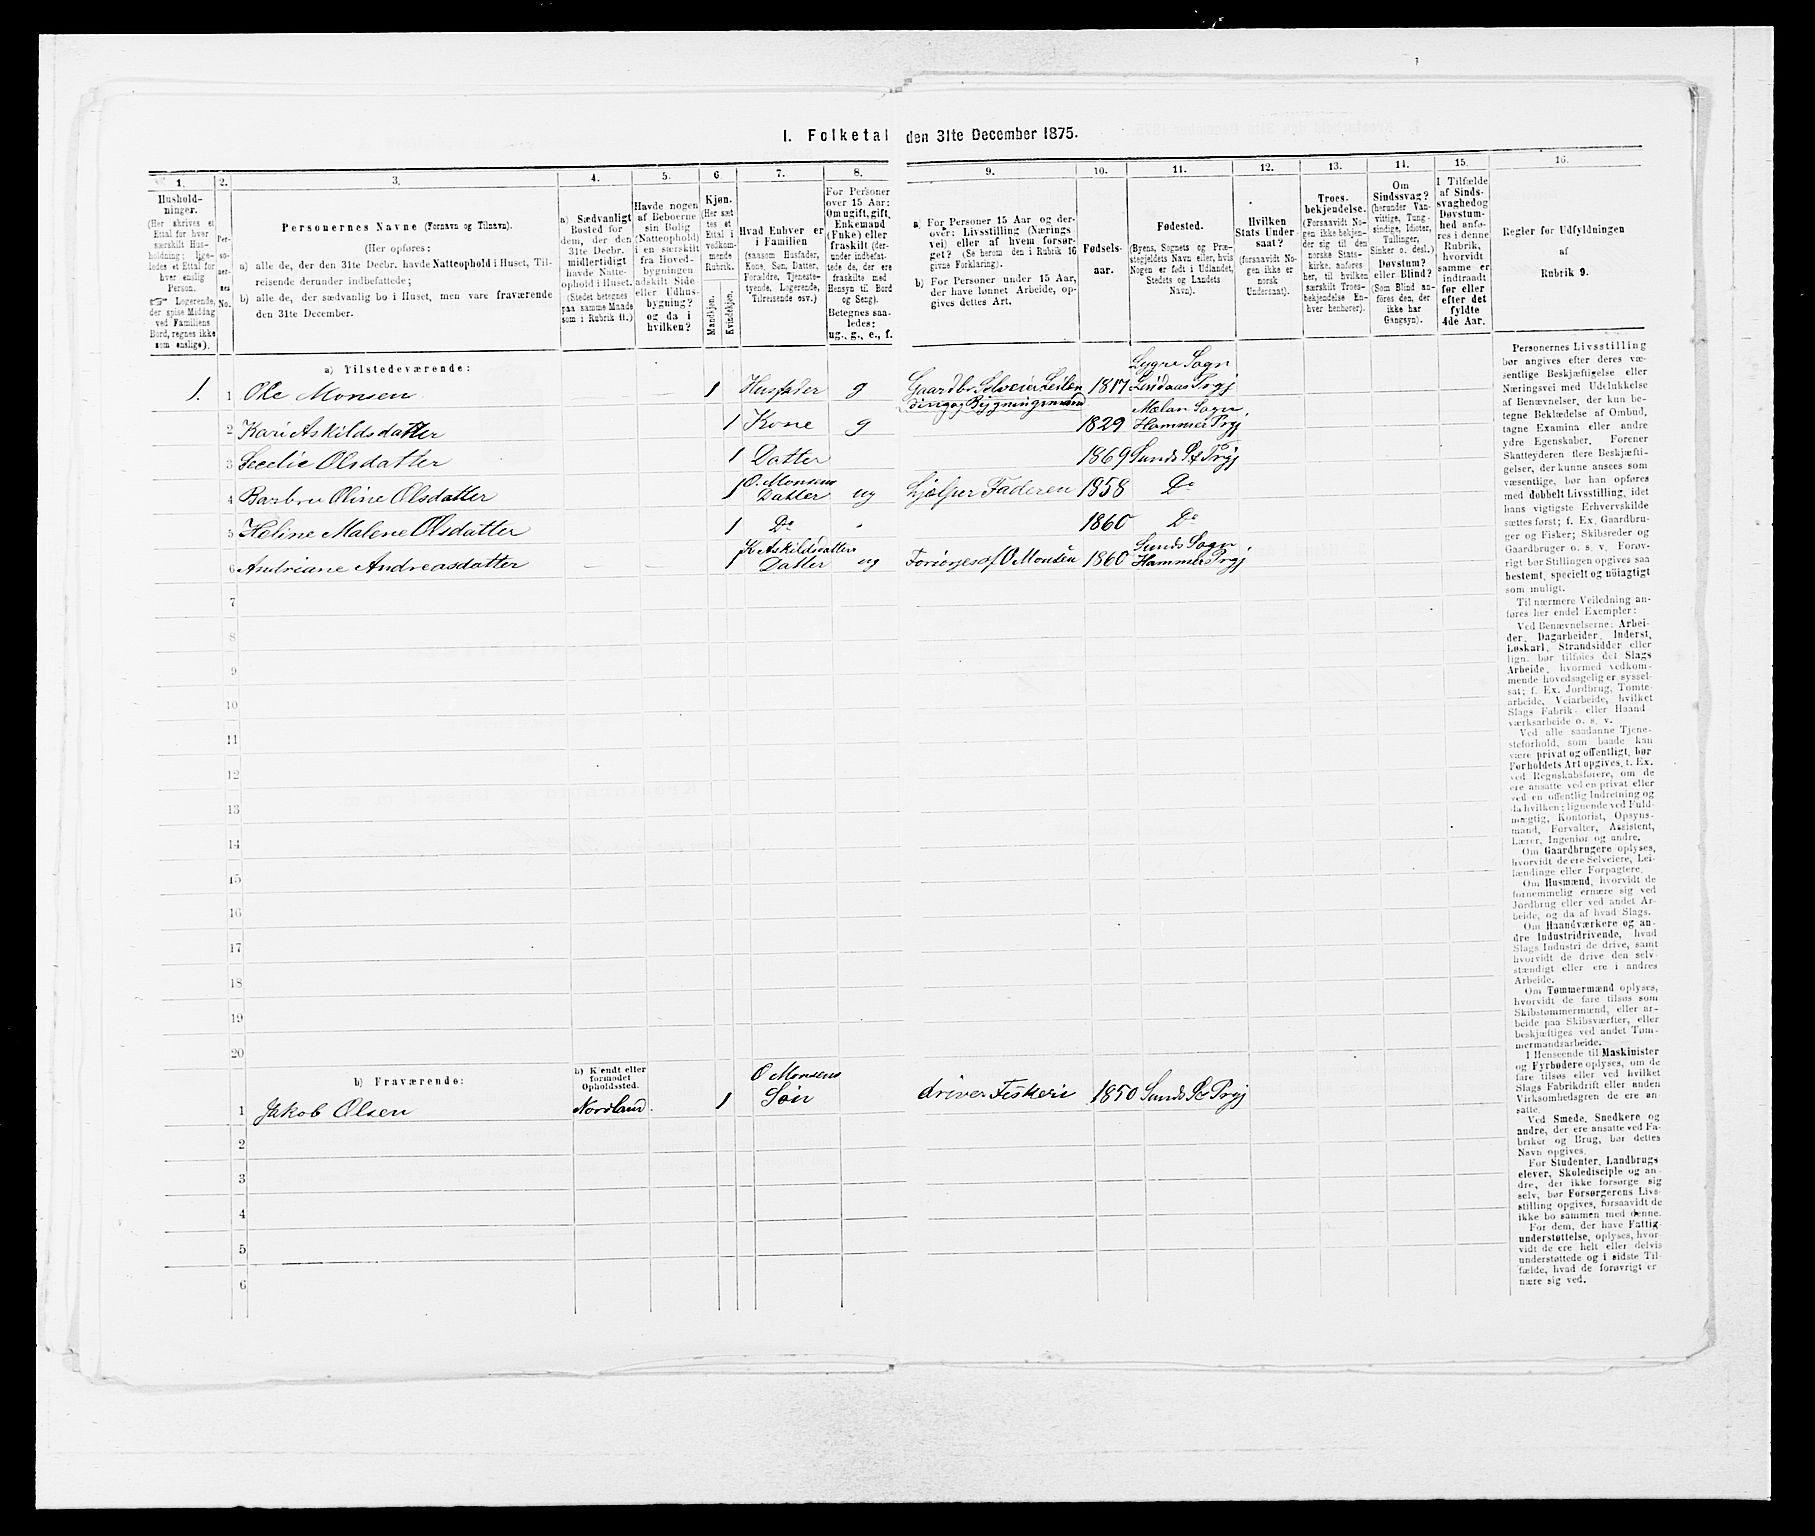 I. Folketal den 31te December 1875.
1.
2.
3.
4.
5.
6
7.
8.
9.
10.
11.
12.
13.
14.
15.
16.
Hushold-
ninger.
(Her skrives et
Ettal for hver
særskilt Hus-
holdning; lige-
ledes et Ettal for
hver enslig
Person.
☞ Logerende,
der spise Middag
ved Familiens
Bord, regnes ikke
som enslige).
Per-
so-
ner-
nes
No.
Personernes Navne (Fornavn og Tilnavn).
(Her opføres:
a) alle de, der den 31te Decbr. havde Natteophold i Huset, Til-
reisende derunder indbefattede;
b) alle de, der sædvanlig bo i Huset, men vare fraværende
den 31te December.
a) Sædvanligt
Bosted for
dem, der den
31te Decbr.
midlertidigt
havde Natte-
ophold i Huset.
(Stedet betegnes
paa samme Maade
som i Rubrik 11.)
Havde nogen
af Beboerne
sin Bolig
(Natteophold)
i en særskilt
fra Hoved-
bygningen
adskilt Side-
eller Udhus-
bygning?
og da i
hvilken?
Kjøn.
(Her sæt-
tes et
Ettal i
vedkom-
mende
Rubrik.
Mandkjøn.
Kvindekjøn.
Hvad Enhver er
i Familien
(saasom Husfader,
Kone, Søn, Datter,
Forældre, Tjeneste-
tyende, Logerende,
Tilreisende osv.)
For Personer
over 15 Aar:
Om ugift, gift,
Enkemand
(Enke) eller
fraskilt (der-
under indbefat-
tede de, der ere
fraskilte med
Hensyn til Bord
og Seng).
Betegnes saa-
ledes:
ug., g., e., f.
a) For Personer 15 Aar og der-
over: Livsstilling (Nærings-
vei) eller af hvem forsør-
get? (Se herom den i Rubrik 16
givne Forklaring).
b) For Personer under 15 Aar,
der have lønnet Arbeide, op-
gives dettes Art.
Fødsels-
aar.
Fødested.
(Byens, Sognets og Præ-
stegjeldets Navn eller, hvis
Nogen er født i Udlandet,
Stedets og Landets
Navn).
Hvilken
Stats Under-
saat?
(forsaavidt No-
gen ikke er
norsk
Undersaat).
Troes-
bekjendelse.
(Forsaavidt No-
gen ikke bekjen-
der sig til den
norske Stats-
kirke, anføres
her, til hvilken
særskilt Troes-
bekjendelse En-
hver henhører).
Om
Sindssvag?
(herunder Van-
vittige, Tung-
sindige, Idioter,
Tullinger,
Sinker o. desl.)
Døvstum?
eller Blind?
(Som Blind an-
føres den, der
ikke har
Gangsyn).
I Tilfælde
af Sinds-
svaghed og
Døvstum-
hed anfø-
res i denne
Rubrik,
hvorvidt
samme er
indtraadt
før eller
efter det
fyldte
4de Aar.
Regler for Udfyldningen
af
Rubrik 9.
a) Tilstedeværende:
Lygre Sogn
1. 1 Ole Monsen 1 Husfader g Gaardbr. Selveier Leilæn 1817 Lindaas Prgj
Mælan Sogn
2 Kari Askildsdatter 1 Kone g 1829 Hammer Prgj
3 Secelie Olsdatter 1 Datter 1869 Sunds S & Prgj
O. Monsens
4 Barbru Oline Olsdatter 1 Datter ug hjælper Faderen 1858 Do
5 Heline Malene Olsdatter 1 Do 1860 Do
K Askildsdatters Sunds Sogn
6 Andriane Andreasdatter 1 Datter ug Forsörjes af O Monsen 1860 Hammer Prgj
7
8
9
10
11
12
13
14
15
16
17
18
19
20
b) Fraværende:
b) Kjendt eller
formodet
Opholdssted.
O Monsens
1 Jakob Olsen Nordland. 1 Sön driver Fiskeri 1850 Sunds S & Prgj
2
3
4
5
6
Personernes Livsstilling
bør angives efter deres væ-
sentlige Beskjæftigelse eller
Næringsvei med Udelukkelse
af Benævnelser, der kun be-
tegne Beklædelse af Ombud,
tagne Examina eller andre
ydre Egenskaber. Forener
Skatteyderen flere Beskjæfti-
gelser, der kunne ansees som
væsentlige, bør han opføres
med dobbelt Livsstilling, idet
hans vigtigste Erhvervskilde
sættes først; f. Ex. Gaardbru-
ger og Fisker; Skibsreder og
Gaardbruger o. s. v. Forøv-
rigt bør Stillingen opgives saa
bestemt, specielt og nöiagtigt
som muligt.
Til nærmere Veiledning an-
føres her endel Exempler:
Ved Benævnelserne: Arbei-
der, Dagarbeider, Inderst,
Løskarl, Strandsidder eller
lign. bør tilføies det Slags
Arbeide, hvormed vedkom-
mende hovedsagelig er syssel-
sat; f. Ex. Jordbrug, Tomte-
arbeide, Veiarbeide, hvilket
Slags Fabrik- eller Haand-
værksarbeide o. s. v.
Ved alle saadanne Tjene-
steforhold, som baade kan
være privat og offentligt, bør
Forholdets Art opgives, t. Ex.
ved Regnskabsførere, om de
ere ansatte ved en privat eller
ved en offentlig Indretning og
da hvilken; lignende ved Fuld-
mægtig, Kontorist, Opsyns-
mand, Forvalter, Assistent,
Lærer, Ingeniør og andre.
Om Gaardbrugere oplyses,
hvorvidt de ere Selveiere, Lei-
lændinge eller Forpagtere.
Om Husmænd, hvorvidt de
fornemmelig ernære sig ved
Jordbrug eller ved andet Ar-
beide, og da af hvad Slags.
Om Haandværkere og an-
dre Industridrivende, hvad
Slags Industri de drive, samt
hvorvidt de drive den selv-
stændigt eller ere i andres
Arbeide.
Om Tømmermænd oplyses,
hvorvidt de fare tilsøs som
Skibstømmermænd, eller ar-
beide paa Skibsværfter, eller
beskjæftiges ved andet Tøm-
mermandsarbeide.
I Henseende til Maskinister
og Fyrbødere oplyses, om de
fare tilsøs eller ved hvilket
Slags Fabrikdrift eller anden
Virksomhedsgren de ere an-
satte.
Ved Smede, Snedkere og
andre, der ere ansatte ved Fa-
briker og Brug, bør dettes
Navn opgives.
For Studenter, Landbrugs-
elever, Skoledisciple og an-
dre, der ikke forsørge sig
selv, bør Forsørgerens Livs-
stilling opgives, forsaavidt de
ikke bo sammen med denne.
For dem, der have Fattig-
understøttelse, oplyses, hvor-
vidt de ere helt eller delvis
understøttede og i sidste Til-
fælde, hvad de forøvrigt er-
nære sig ved.